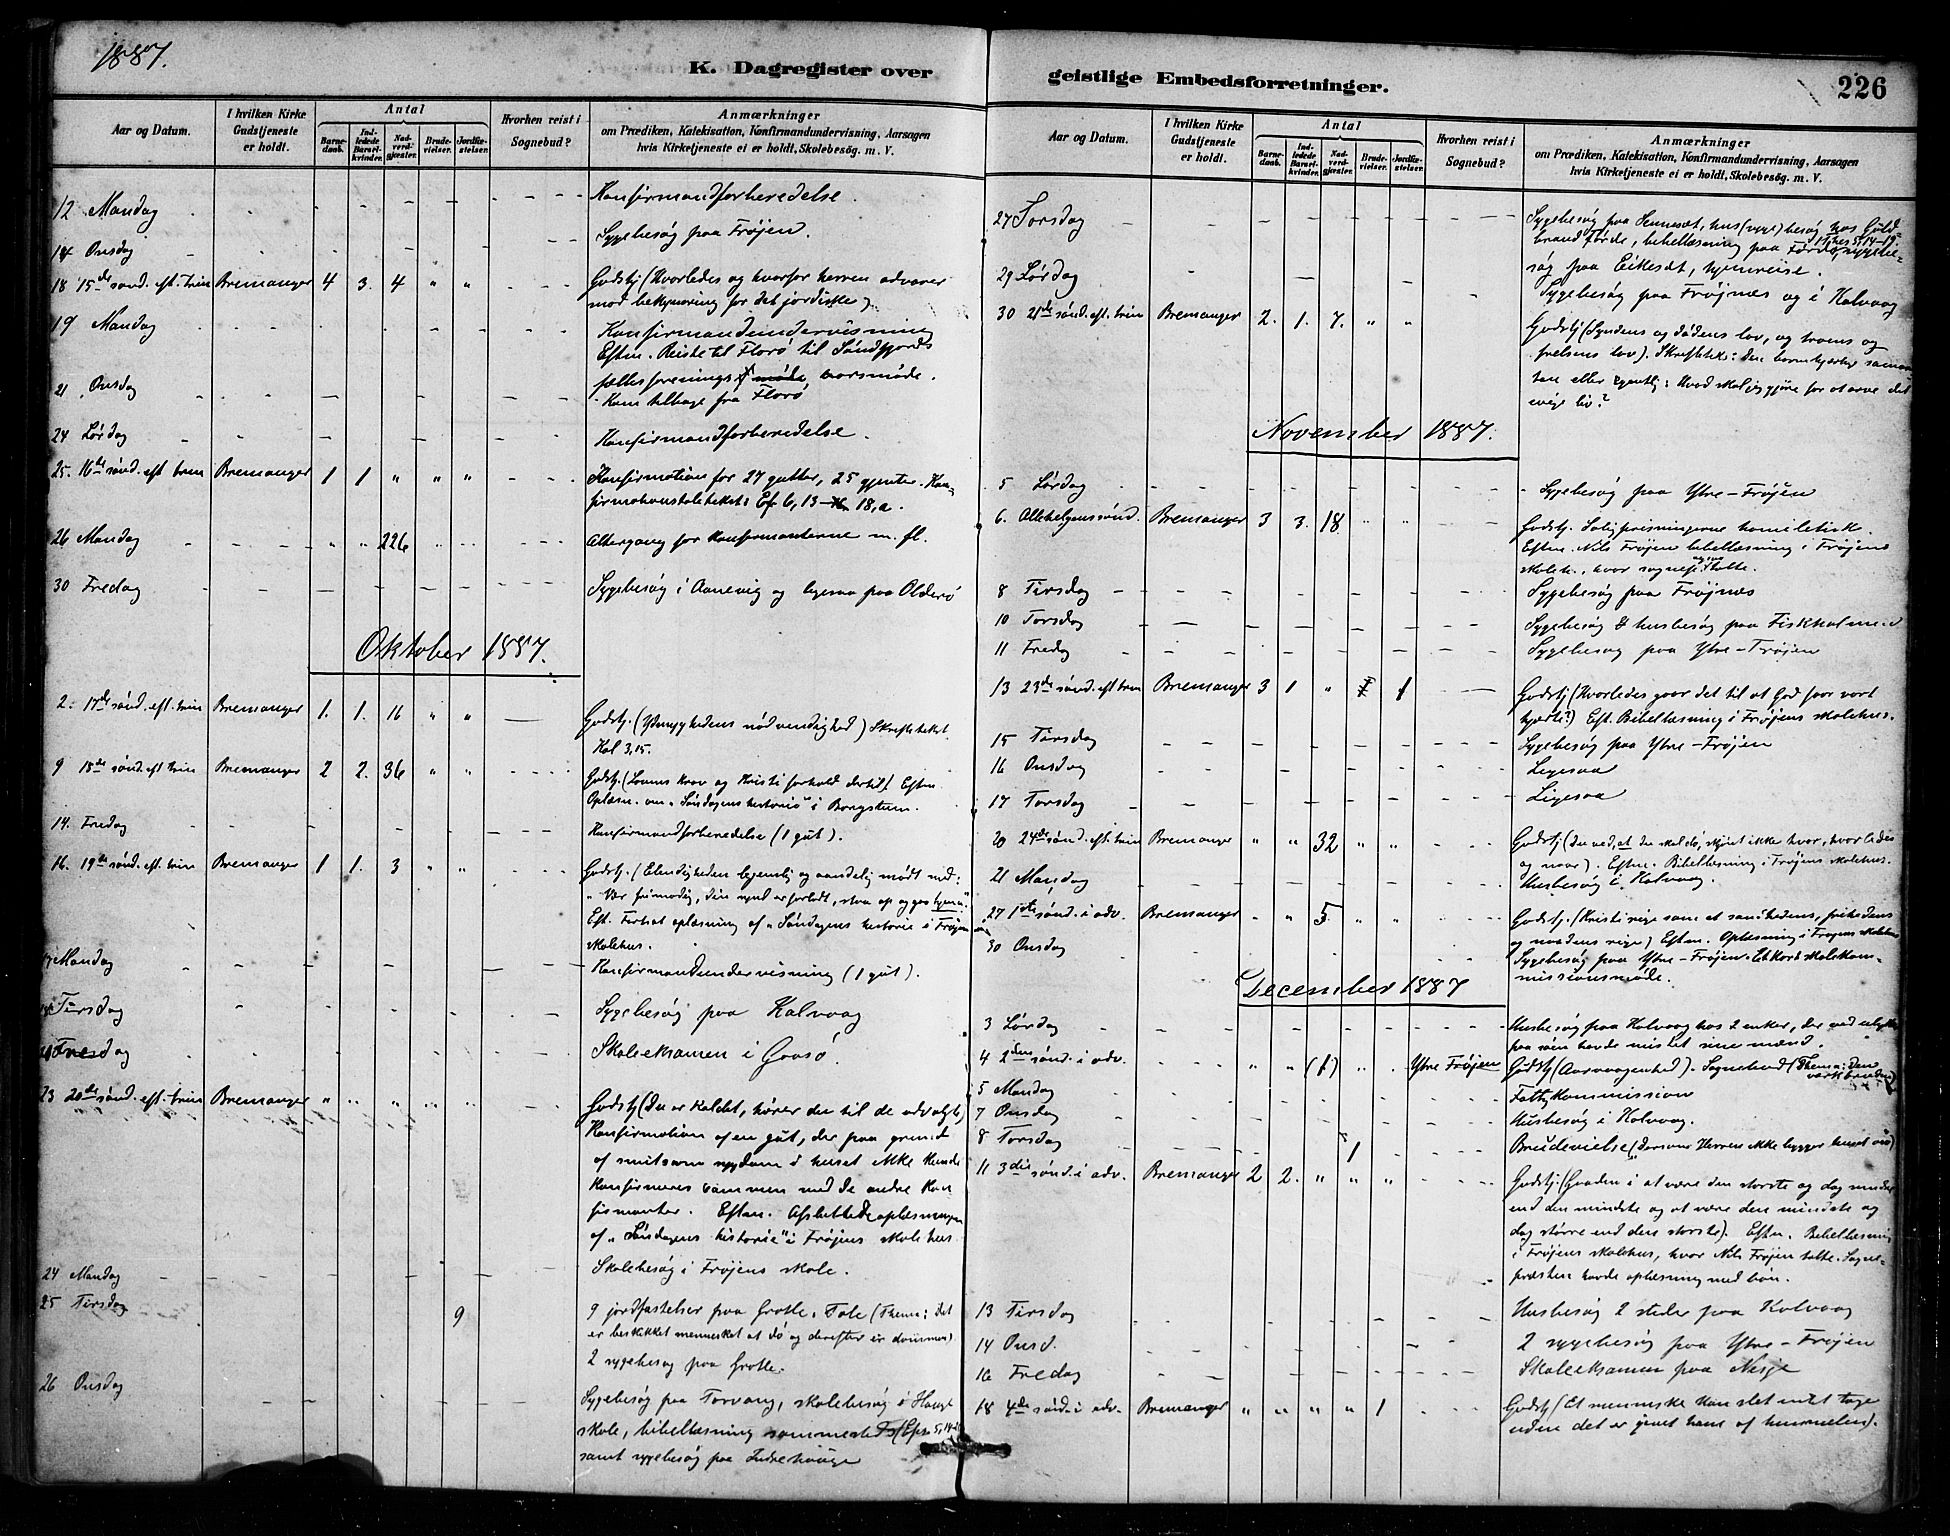 1887.
K. Dagregister over
Aar og Datum.
I hvilken Kirke Gudstjeneste er holdt.
Antal
Barnedaab.
Indledede Barselkvinder.
Nadverdgjæster.
Brudevielser.
Jordfæstelser.
Hvorhen reist i Sognebud?
Anmærkninger
om Prædiken, Katekisation, Konfirmandundervisning, Aarsagen
hvis Kirketjeneste ei er holdt, Skolebesøg. m. V.
12 Mandag Konfirmandforberedelse.
14 Onsdag Sygebesøg paa Frøjen.
18 15de sønd. eft. trin Bremanger 4 3. 4 " " Godstj (Hvorledes og hvorfor herren advarer
mod bekymring for det jordiske).
19 Mandag Konfirmandundervisning
Eftm. Reiste til Florø til Søndfjords
fællesforenings møde, aarsmøde.
21 Onsdag Kom tilbage fra Florø
24 Lørdag Konfirmandforberedelse.
25. 16de sønd. eft. trin Bremanger 1 1 " " " Konfirmation for 27 gutter, 25 gjenter. Kon-
firmationstaletekst: Ef 6, 13 - 18, a.
26 Mandag " " 226 Altergang for konfirmanterne m. fl.
30 Fredag Sygebesøg i Aanevig og ligesaa paa Olderø
Oktober 1887.
2. 17de sønd. eft. trin Bremanger 1. 1. 16 " " Godstj. (Ydmyghedens nødvendighed) Skriftetekst
Kol 3,15.
9 18de sønd. eft trin Bremanger 2 2. 36 " " Godstj. (Lovens krav og Kristi forhold dertil). Eftm.
Oplæsn. om „Søndagens historie" i
14. Fredag Konfirmandforberedelse (1 gut).
16. 19de sønd. eft. trin Bremanger 1 1. 3 " " Godstj. (Elendigheden legemlig og aandelig mødt med:
„Vær frimodig, din synd er forladt, staa op og gaa hjem".
Eft. Fortsat oplæsning af „Søndagens historie i Frøjen
skolehus.
17 Mandag Konfirmandundervisning (1 gut).
18 Tirsdag Sygebesøg paa Kalvaag
Skoleeksamen i Gaasø.
23 20de sønd. eft. trin Bremanger " " " " " Godstj (Du er kaldet, hører du til de udvalgte)
Konfirmation af en gut, der paa grund
af smitsom sygdom i huset ikke kunde
konfirmeres sammen med de andre kon
firmanter. Eftm. Afsluttede oplæsningen
af „Søndagens historie" i Frøjens skolehus.
24 Mandag Skolebesøg i Frøjens skole.
25 Tirsdag 9 9 jordfæstelser paa Grotle. Tale (Thema: det
er beskikket mennesket at dø og derefter er dommen)
2 sygebesøg paa Grotle.
26 Onsdag Sygebesøg paa Torvang, skolebesøg i Hauge
skole, bibellæsning sammesteds (Efs. 5, 14-21)
samt sygebesøg paa Indrehauge
geistlige Embedsforretninger.
226
Aar og Datum.
I hvilken Kirke Gudstjeneste er holdt.
Antal
Barnedaab.
Indledede Barselkvinder.
Nadverdgjæster.
Brudevielser.
Jordfæstelser.
Hvorhen reist i Sognebud?
Anmærkninger
om Prædiken, Katekisation, Konfirmandundervisning, Aarsagen
hvis Kirketjeneste ei er holdt, Skolebesøg. m. V.
27 Torsdag Sygebesøg paa Sennesæt, hus(syge)besøg hos Guld-
brand Førde, bibellæsning paa Førde, sygebe-
søg paa Eikesæt, hjemreise.
29 Lørdag Sygebesøg paa Frøjnæs og i Kalvaag
30 21de sønd. eft. trin Bremanger 2. 1. 7. " " Godstj (Syndens og dødens lov, og troens og
frelsens lov). Skriftetek: den barmhjertige samari
tan eller egentlig: Hvad skal jeg gjøre for at arve det
evige liv?
November 1887.
5 Lørdag Sygebesøg paa Ytre-Frøjen
6. Allehelgenssønd. Bremanger 3 3. 18 " " Godstj. Saligprisningerne homiletisk.
Eftm. Nils Frøjen bibellæsning i Frøjens
skoleh., hvor sognepr. ogsaa talte.
8 Tirsdag Sygebesøg paa Frøjnæs
10 Torsdag Sygebesøg & husbesøg paa Fiskholmen
11 Fredag Sygebesøg paa Ytre-Frøjen
13 23de sønd. eft trin Bremanger 3 1 " 1 Godstj (Hvorledes gaar det til at God faar vort
hjerte?) Eft. Bibellæsning i Frøjens skolehus.
15 Tirsdag Sygebesøg paa Ytre-Frøjen
16 Onsdag Ligesaa
17 Torsdag Ligesaa
20 24de sønd. eft trin Bremanger " " 32 " " Godstj (Du ved, at du skal dø, skjønt ikke hvor, hvorledes
og naar). Eftm. Bibellæsning i Frøjens skolehus.
21 Mandag Husbesøg i Kalvaag.
27 1ste sønd. i adv. Bremanger " " 5 " " Godstj. (Kristi rige som et sandhedens, frihedens
og naadens rige) Eftm. Oplæsning i Frøjens skolehus
30 Onsdag Sygebesøg paa Ytre-Frøjen. Et kort skolekom-
missionsmøde.
December 1887
3 Lørdag Husbesøg paa Kalvaag hos 2 enker, der ved ulykke
paa søen havde mistet sine mænd.
4 2den sønd. i adv. " " (1) " " Ytre Frøjen Godstj (Aarvaagenhed). Sognebud (Thema: Den
værkbrudne)
5 Mandag Fattigkommission
7 Onsdag Husbesøg i Kalvaag.
8 Torsdag 1 Brudevielse („Dersom Herren ikke bygger huset osv)
11 3die sønd. i adv. Bremanger 2 2. " " " Godstj. (Gaaden i at være den største og dog mindre
end den mindste og at være den mindste og
dog større end den største). Eftm. Bibellæsning
i Frøjens skolehus, hvor Nils Frøjen talte. Sogne-
præsten havde oplæsning med bøn.
13 Tirsdag Husbesøg 2 steder paa Kalvaag
14 Onsd. 2 sygebesøg paa Ytre-Frøjen
16 Fredag Skoleeksamen paa Nesje
18 4de sønd. i adv. Bremanger " " " " 1 Godstj (Et menneske kan slet intet tage
uden det er givet ham af himmelen).